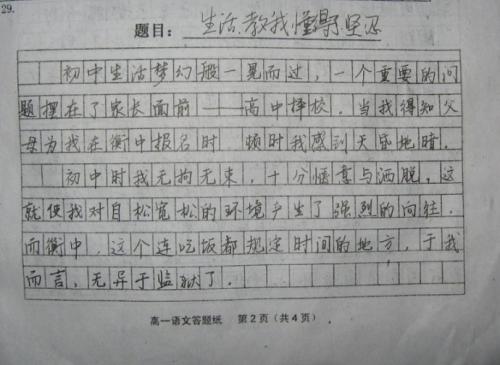 29.
题目：生活教我懂得坚忍
初中生活梦幻般一晃而过，一个重要的问
题摆在了家长面前——高中择校．当我得知父
母为我在衡中报名时 顿时我感到天昏地暗．
初中时我无拘无束，十分惬意与洒脱，这
就使我对自松宽松的环境产生了强烈的向往．
而衡中，这个连吃饭都规定时间的地方，于我
而言，无异于监狱了．
高一语文答题纸 第2页（共4页）